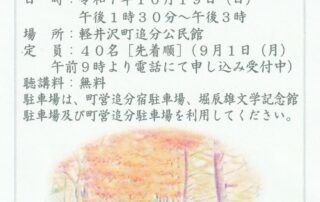 日　時：令和７年１０月１９日（日）
午後１時３０分～午後３時
場　所：軽井沢町追分公民館
定　員：４０名［先着順］（９月１日（月）
午前９時より電話にて申し込み受付中）
聴講料：無料
駐車場は、町営追分宿駐車場、堀辰雄文学記念館
駐車場及び町営追分駐車場を利用してください。